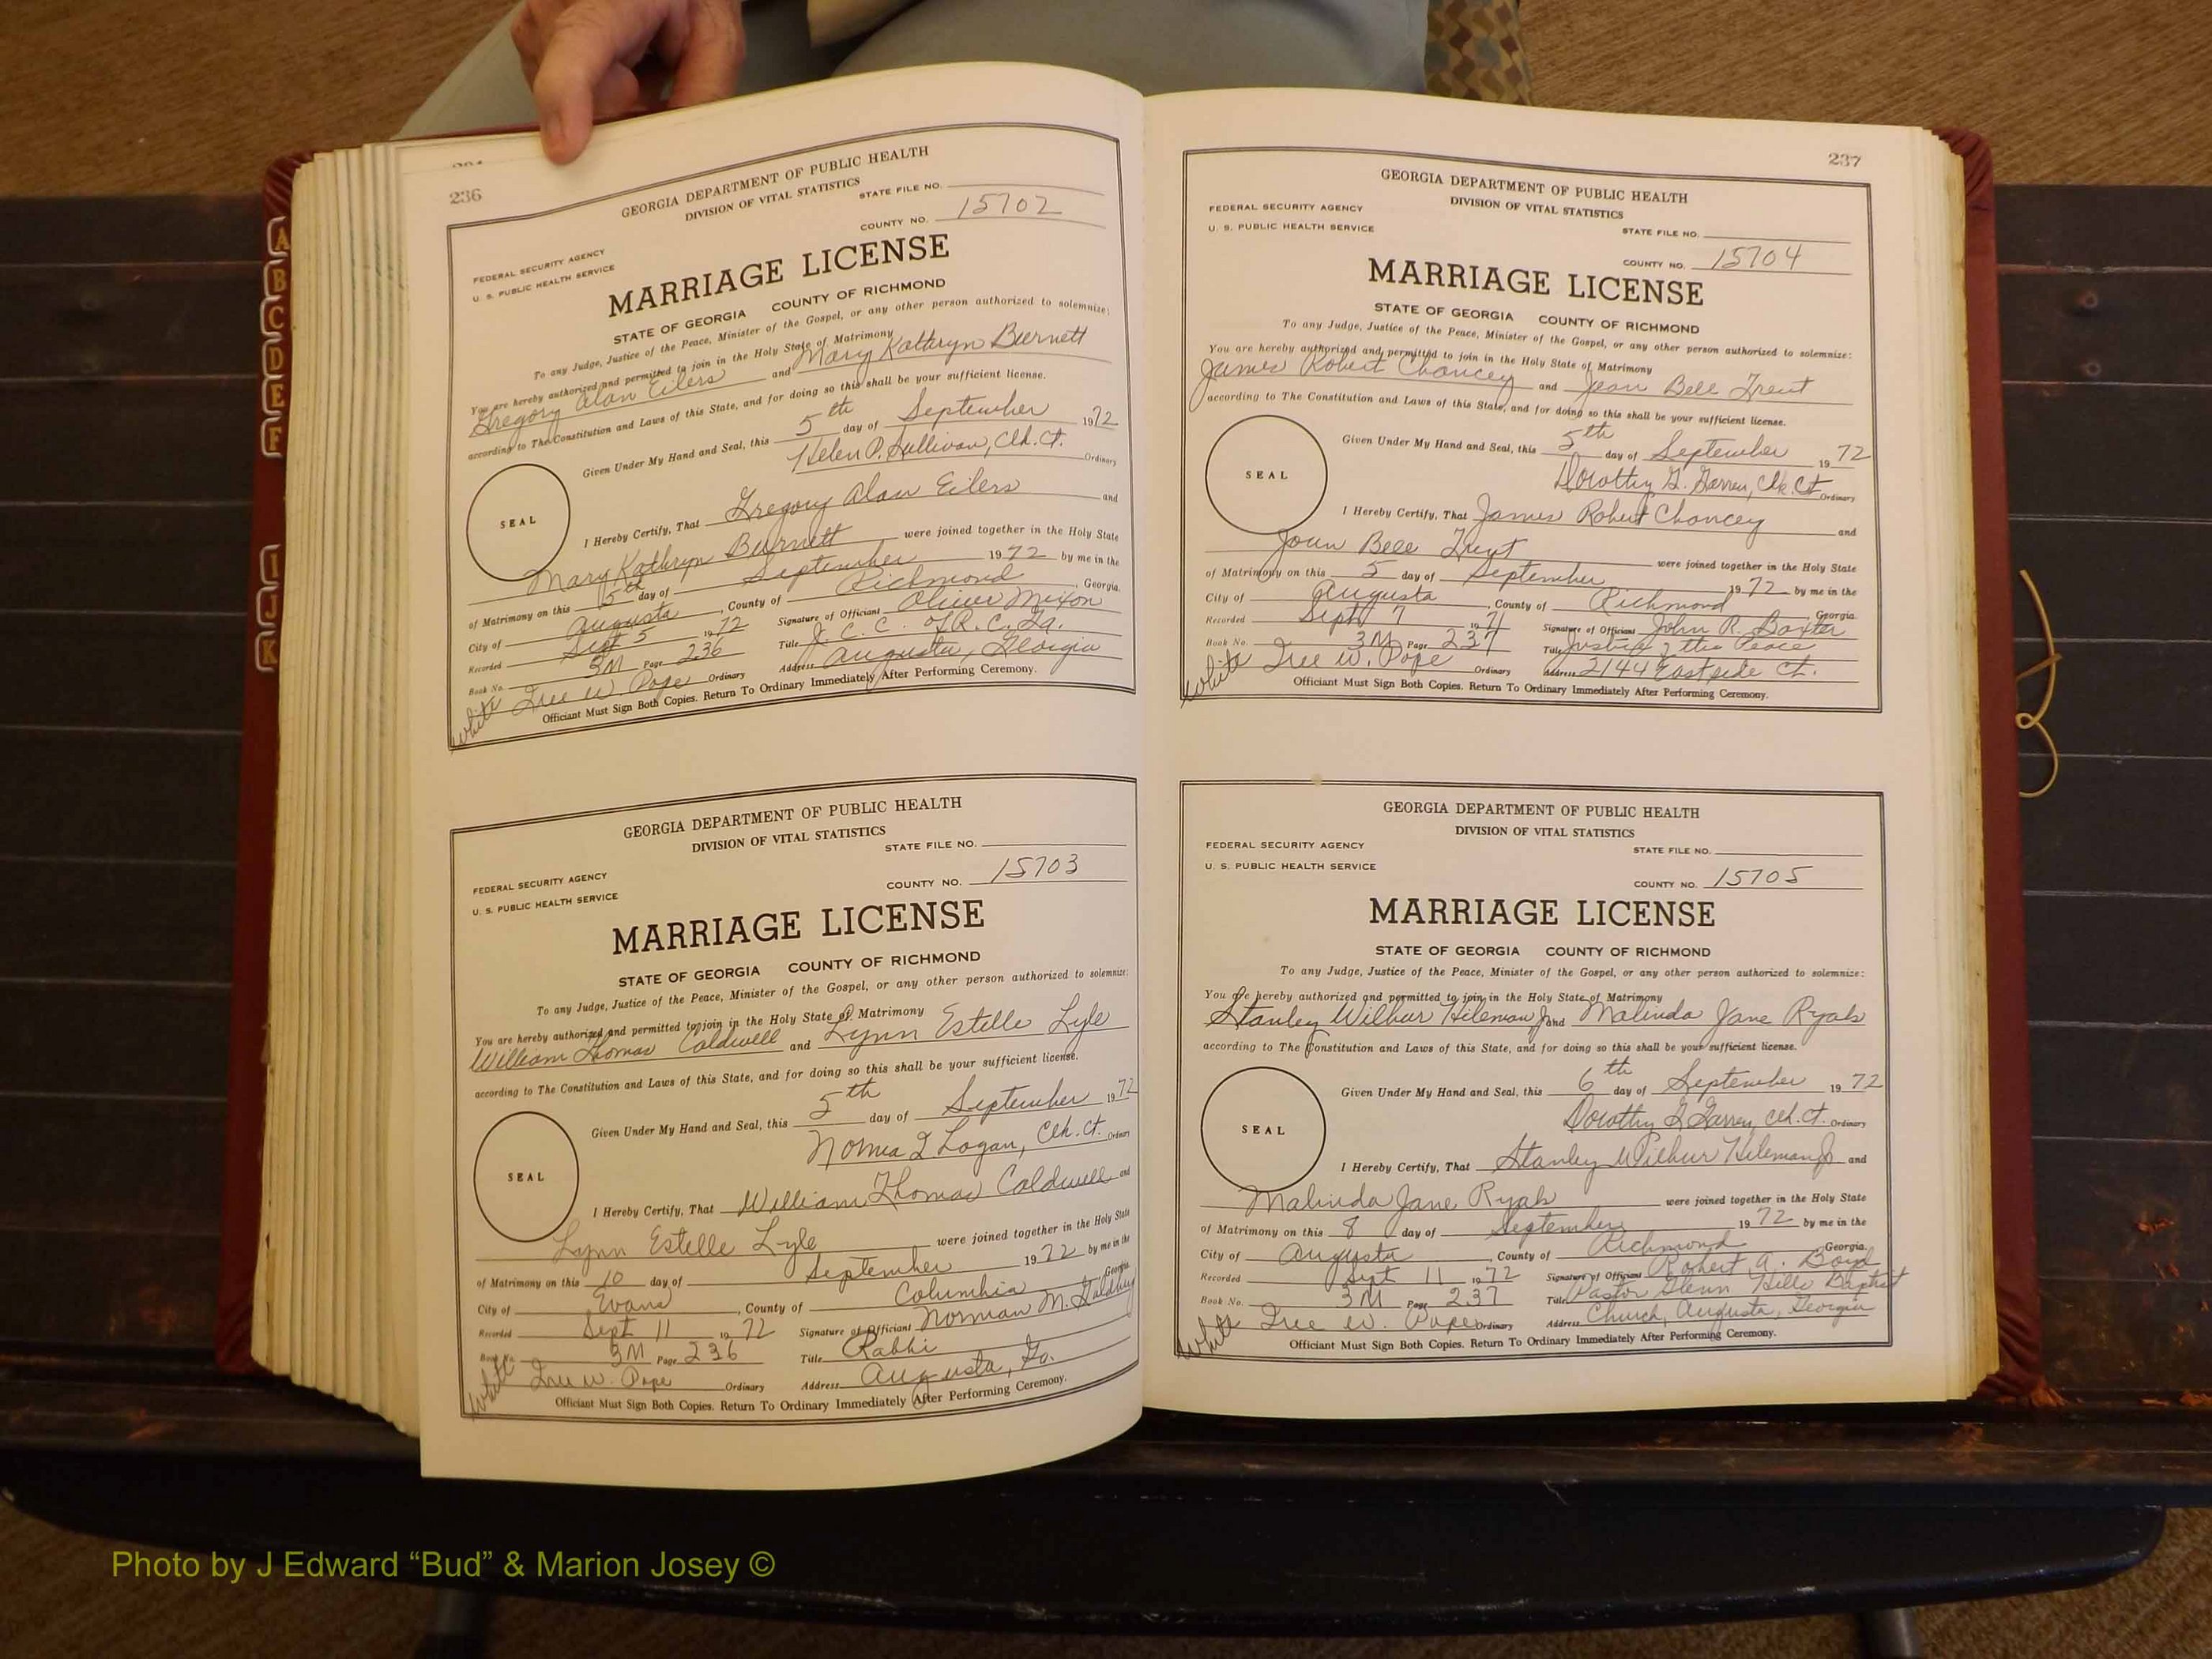 236
GEORGIA DEPARTMENT OF PUBLIC HEALTH
DIVISION OF VITAL STATISTICS
STATE FILE NO.
COUNTY NO. 15702
FEDERAL SECURITY AGENCY
U. S. PUBLIC HEALTH SERVICE
MARRIAGE LICENSE
STATE OF GEORGIA COUNTY OF RICHMOND
To any Judge, Justice of the Peace, Minister of the Gospel, or any other person authorized to solemnize:
You are hereby authorized and permitted to join in the Holy State of Matrimony
Gregory Alan Eilers and Mary Kathryn Burnett
according to The Constitution and Laws of this State, and for doing so this shall be your sufficient license.
Given Under My Hand and Seal, this 5th day of September 1972
Helen P. Sullivan, Clk. Ct. Ordinary
SEAL
I Hereby Certify, That Gregory Alan Eilers and
Mary Kathryn Burnett were joined together in the Holy State
of Matrimony on this 5th day of September 1972 by me in the
City of Augusta, County of Richmond, Georgia.
Recorded Sept 5 1972 Signature of Officiant Oliver Mixon
Book No. 3M Page 236 Title J. C. C. of R. C. Ga.
White Ordinary Address Augusta, Georgia
Officiant Must Sign Both Copies. Return To Ordinary Immediately After Performing Ceremony.
GEORGIA DEPARTMENT OF PUBLIC HEALTH
DIVISION OF VITAL STATISTICS
STATE FILE NO.
COUNTY NO. 15703
FEDERAL SECURITY AGENCY
U. S. PUBLIC HEALTH SERVICE
MARRIAGE LICENSE
STATE OF GEORGIA COUNTY OF RICHMOND
To any Judge, Justice of the Peace, Minister of the Gospel, or any other person authorized to solemnize:
You are hereby authorized and permitted to join in the Holy State of Matrimony
William Thomas Caldwell and Lynn Estelle Lyle
according to The Constitution and Laws of this State, and for doing so this shall be your sufficient license.
Given Under My Hand and Seal, this 5th day of September 1972
Logan, Clk. Ct. Ordinary
SEAL
I Hereby Certify, That William Thomas Caldwell and
Lynn Estelle Lyle were joined together in the Holy State
of Matrimony on this 10 day of September 1972 by me in the
City of Evans, County of Columbia Georgia
Recorded Sept 11 1972 Signature of Officiant Norman M. Goldburg
Book No. 3M Page 236 Title Rabbi
White W. Pope Ordinary Address Augusta, Ga.
Officiant Must Sign Both Copies. Return To Ordinary Immediately After Performing Ceremony.
237
GEORGIA DEPARTMENT OF PUBLIC HEALTH
DIVISION OF VITAL STATISTICS
FEDERAL SECURITY AGENCY
U. S. PUBLIC HEALTH SERVICE
STATE FILE NO.
COUNTY NO. 15704
MARRIAGE LICENSE
STATE OF GEORGIA COUNTY OF RICHMOND
To any Judge, Justice of the Peace, Minister of the Gospel, or any other person authorized to solemnize:
You are hereby authorized and permitted to join in the Holy State of Matrimony
James Robert Chancey and Jean Bell Trent
according to The Constitution and Laws of this State, and for doing so this shall be your sufficient license.
Given Under My Hand and Seal, this 5th day of September 1972
Dorothy G. Garren, Clk. Ct. Ordinary
SEAL
I Hereby Certify, That James Robert Chancey and
Bell Trent were joined together in the Holy State
of Matrimony on this 5 day of September 1972 by me in the
City of Augusta, County of Richmond, Georgia
Recorded Sept 7 1971 Signature of Officiant John R. Baxter
Book No. 3M Page 237 Title Justice of the Peace
White W. Pope Ordinary Address 2144 Eastside Ct.
Officiant Must Sign Both Copies. Return To Ordinary Immediately After Performing Ceremony.
GEORGIA DEPARTMENT OF PUBLIC HEALTH
DIVISION OF VITAL STATISTICS
FEDERAL SECURITY AGENCY
U. S. PUBLIC HEALTH SERVICE
STATE FILE NO.
COUNTY NO. 15705
MARRIAGE LICENSE
STATE OF GEORGIA COUNTY OF RICHMOND
To any Judge, Justice of the Peace, Minister of the Gospel, or any other person authorized to solemnize:
You are hereby authorized and permitted to join in the Holy State of Matrimony
Stanley Wilbur Hileman Jr and Malinda Jane Ryals
according to The Constitution and Laws of this State, and for doing so this shall be your sufficient license.
Given Under My Hand and Seal, this 6th day of September 1972
Dorothy G Garren, Clk. Ct. Ordinary
SEAL
I Hereby Certify, That Stanley Wilbur Hileman Jr and
Malinda Jane Ryals were joined together in the Holy State
of Matrimony on this 8 day of September 1972 by me in the
City of Augusta, County of Richmond, Georgia.
Recorded Sept 11 1972 Signature of Officiant Robert A. Boyd
Book No. 3M Page 237 Title Pastor Glenn Hills Baptist
White W. Pope Ordinary Address Church, Augusta, Georgia
Officiant Must Sign Both Copies. Return To Ordinary Immediately After Performing Ceremony.
A
B
C
D
E
F
I
J
K
Photo by J Edward “Bud” & Marion Josey ©